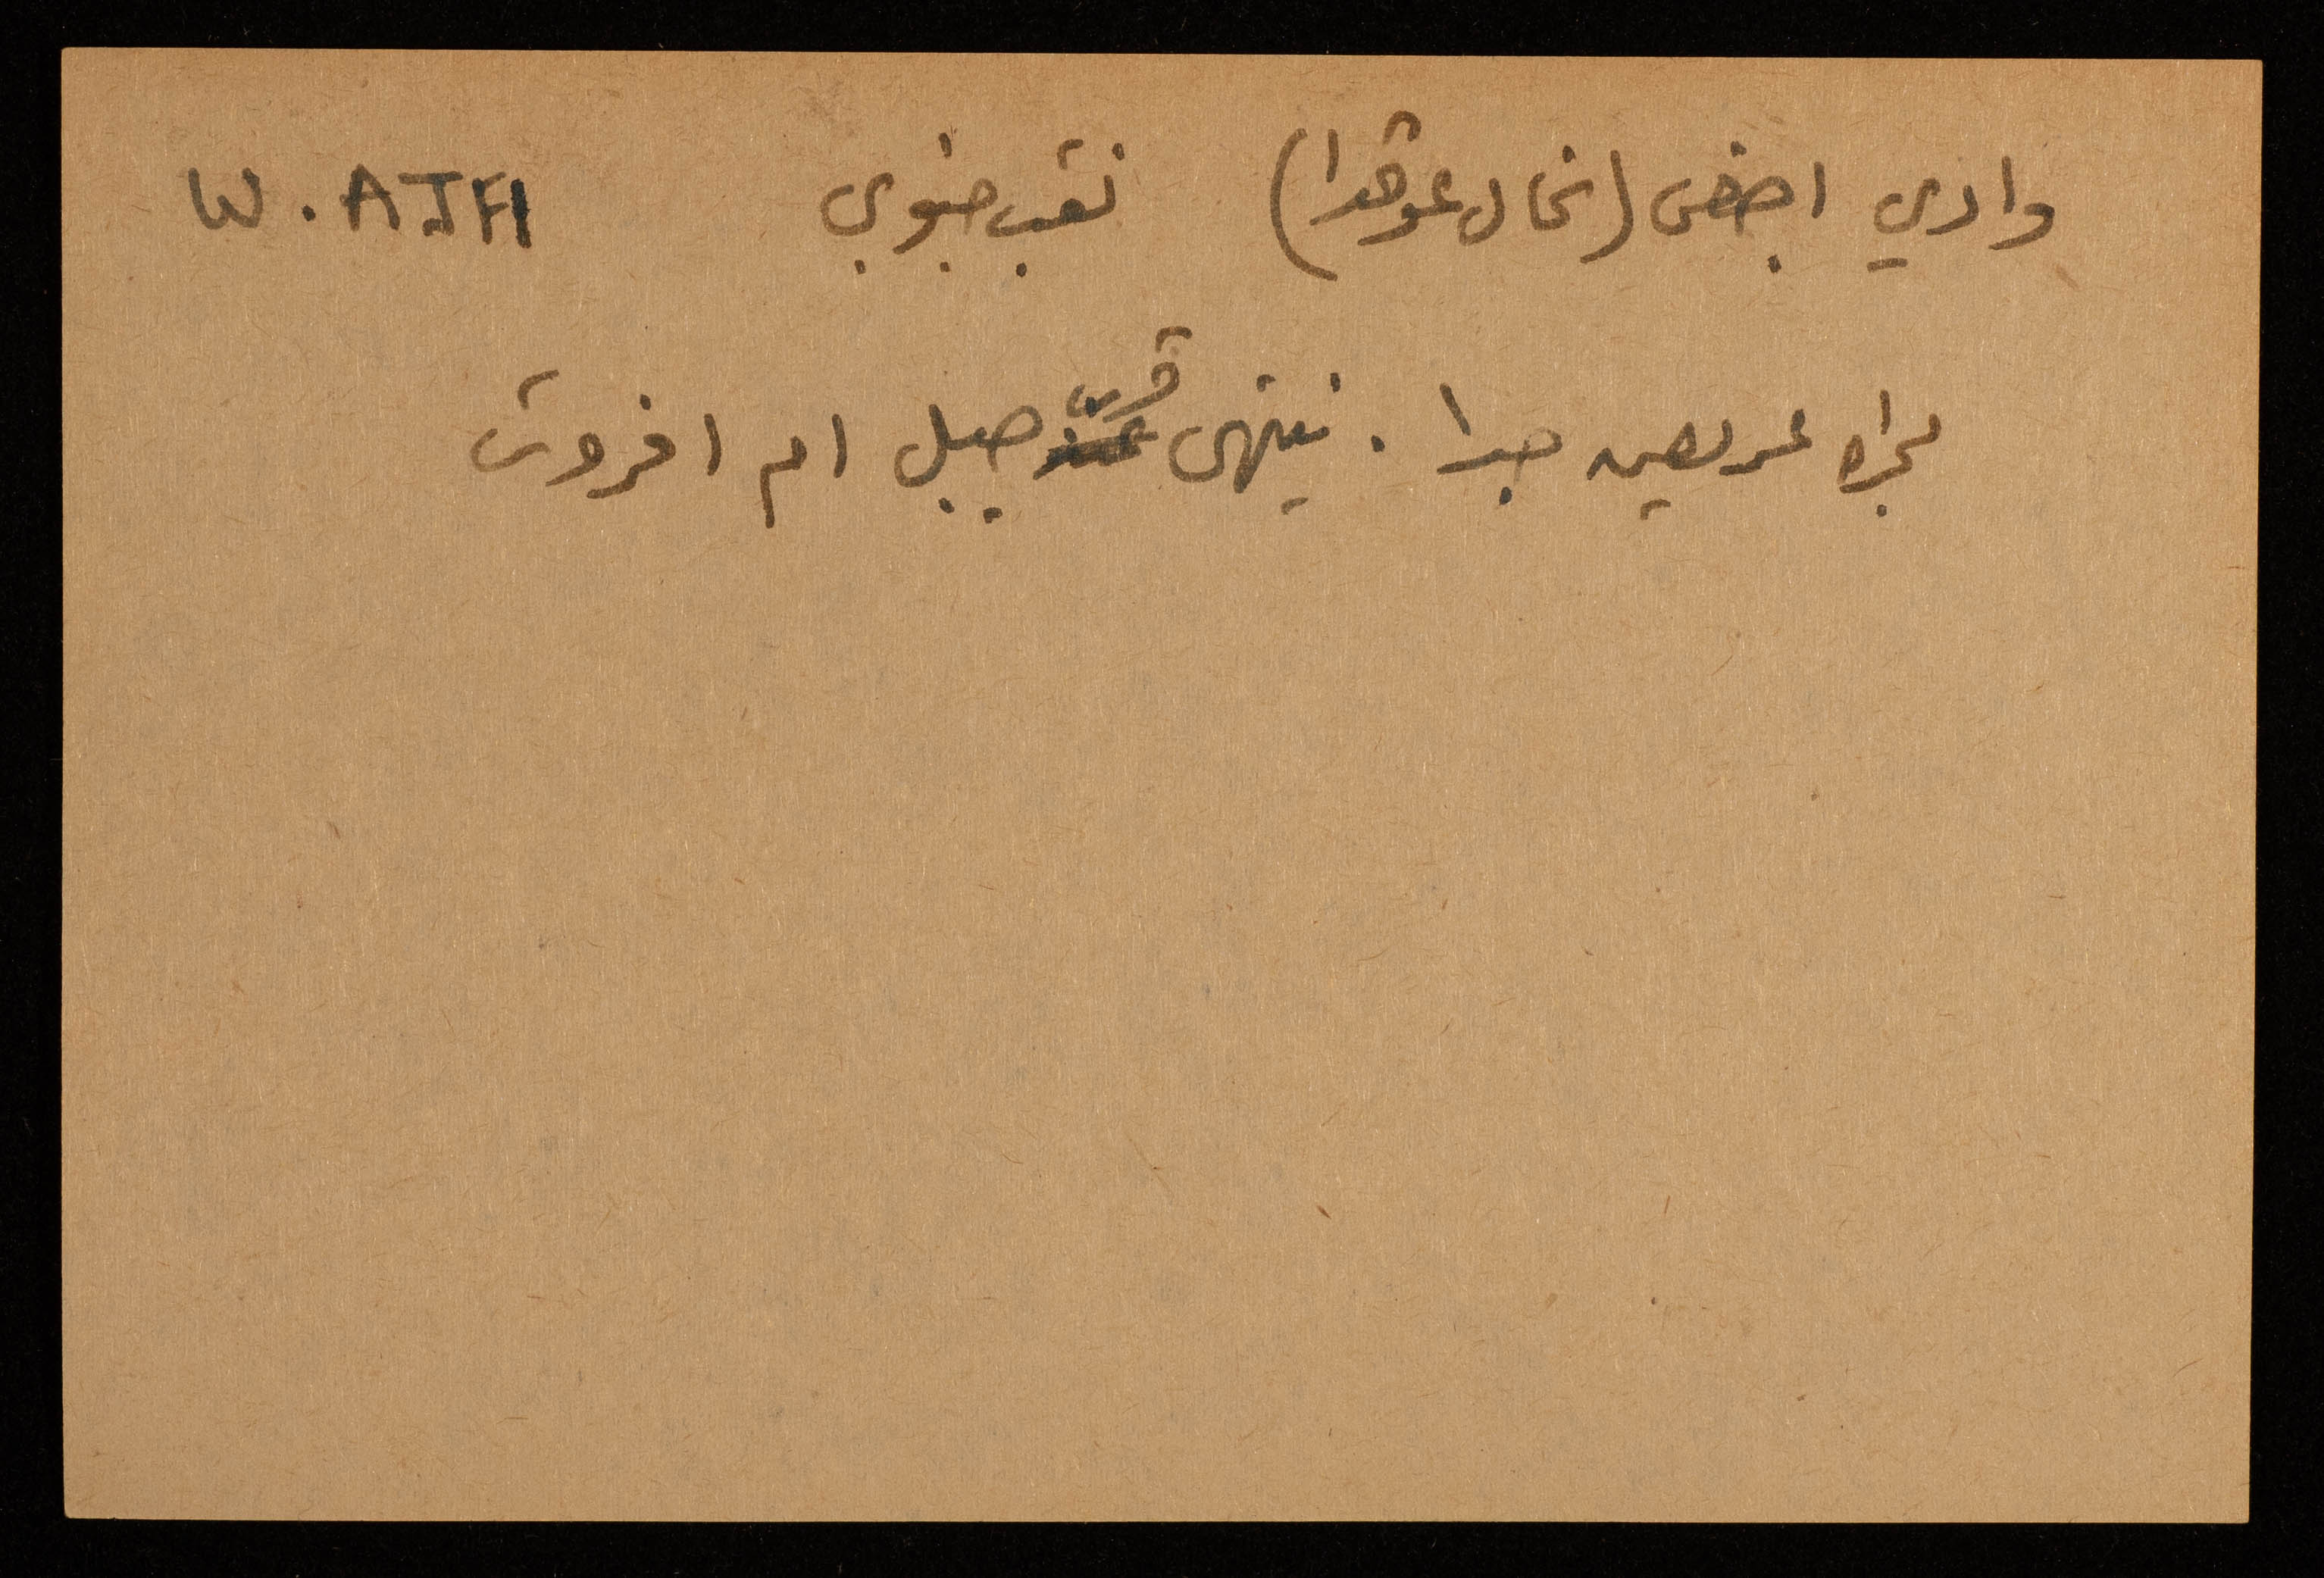 وادي اجفى (نحال عوقدا) نقب جنوبي W. AJFI
مجراه عريض جدا. ينتهي قرب جبل ام افروت